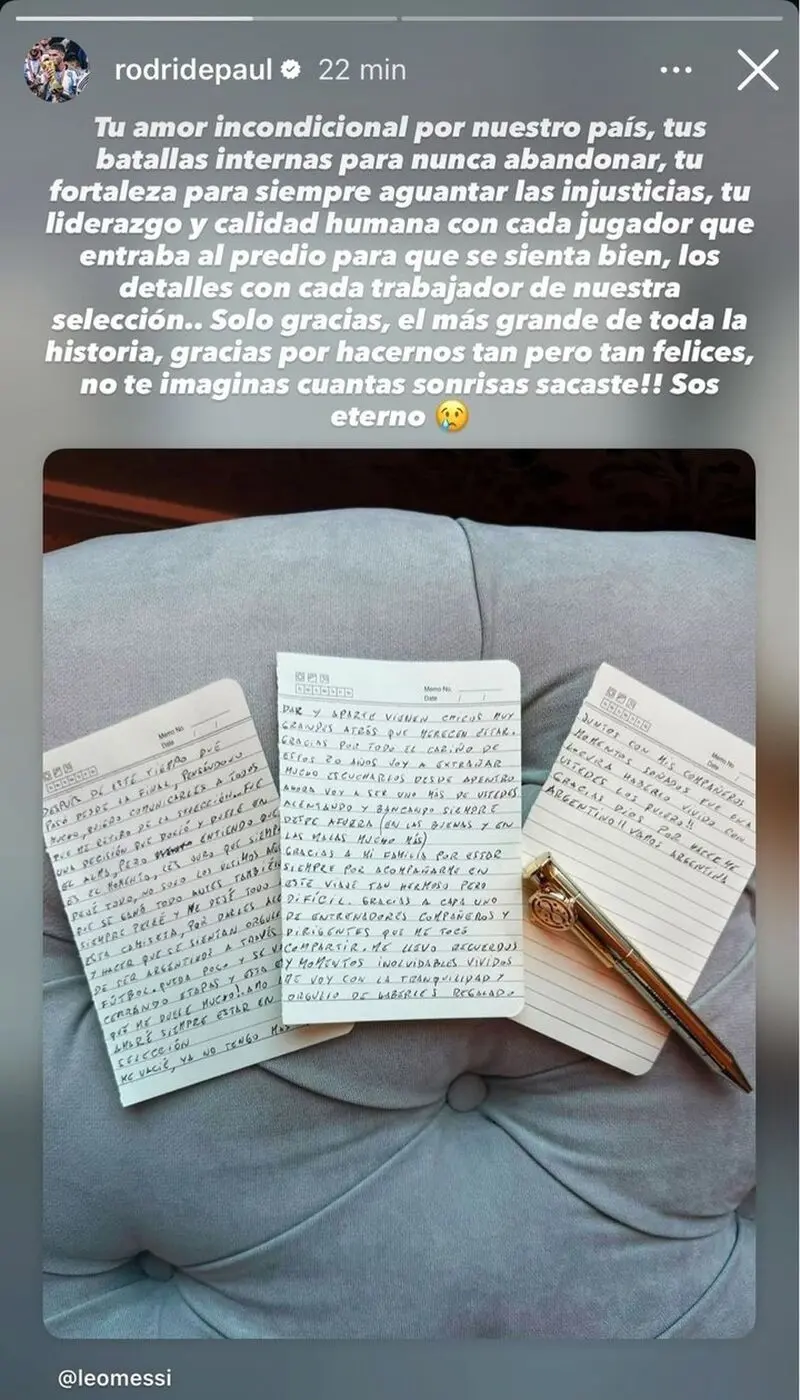 rodridepaul 22 min
Tu amor incondicional por nuestro país, tus
batallas internas para nunca abandonar, tu
fortaleza para siempre aguantar las injusticias, tu
liderazgo y calidad humana con cada jugador que
entraba al predio para que se sienta bien, los
detalles con cada trabajador de nuestra
selección.. Solo gracias, el más grande de toda la
historia, gracias por hacernos tan pero tan felices,
no te imaginas cuantas sonrisas sacaste!! Sos
eterno 😢
Memo No.
Date / /
DESPUÉS DE ESTE TIEMPO QUE
PASÓ DESDE LA FINAL, PENSÁNDOLO
MUCHO, QUIERO COMUNICARLES A TODOS
QUE ME RETIRO DE LA SELECCIÓN. FUE
UNA DECISIÓN QUE DOLIÓ Y DUELE EN
EL ALMA, PERO ENTIENDO QUE
ES EL MOMENTO. LES JURO QUE SIEMPRE
DEJÉ TODO, NO SOLO LOS ÚLTIMOS
QUE SE GANÓ TODO ANTES TAMBIÉN
SIEMPRE PELEÉ Y ME DEJÉ TODO
ESTA CAMISETA, POR DARLES
Y HACER QUE SE SIENTAN
DE SER ARGENTINOS A TRAVÉS
FÚTBOL. QUEDA POCO Y SE
CERRANDO ETAPAS Y ESTA
QUE ME DUELE MUCHO. AMO
AMARÉ SIEMPRE ESTAR EN
SELECCIÓN
ME VACIÉ, YA NO TENGO
Memo No.
Date / /
DAR Y APARTE VIENEN CHICOS MUY
GRANDES ATRÁS QUE MERECEN ESTAR.
GRACIAS POR TODO EL CARIÑO DE
ESTOS 20 AÑOS VOY A EXTRAÑAR
MUCHO ESCUCHARLOS DESDE ADENTRO
AHORA VOY A SER UNO MÁS DE USTEDES
ALENTANDO Y BANCANDO SIEMPRE
DESDE AFUERA (EN LAS BUENAS Y EN
LAS MALAS MUCHO MÁS)
GRACIAS A MI FAMILIA POR ESTAR
SIEMPRE POR ACOMPAÑARME EN
ESTE VIAJE TAN HERMOSO PERO
DIFÍCIL. GRACIAS A CADA UNO
DE ENTRENADORES COMPAÑEROS Y
DIRIGENTES QUE ME TOCÓ
COMPARTIR. ME LLEVO RECUERDOS
Y MOMENTOS INOLVIDABLES VIVIDOS
ME VOY CON LA TRANQUILIDAD Y
ORGULLO DE HABERLES REGALADO
Memo No.
Date
JUNTOS CON MIS COMPAÑEROS
MOMENTOS SOÑADOS FUE UNA
LOCURA HABERLO VIVIDO CON
USTEDES LOS QUIERO!!
GRACIAS DIOS POR HACERME
ARGENTINO!! VAMOS ARGENTINA
@leomessi